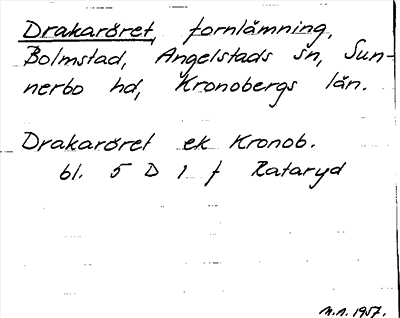 Drakaröret, fornlämning,
Bolmstad, Angelstads sn, Sun-
nerbo hd, Kronobergs län.
Drakaröret ek Kronob.
bl. 5 D 1 f Rataryd
N.N. 1957.